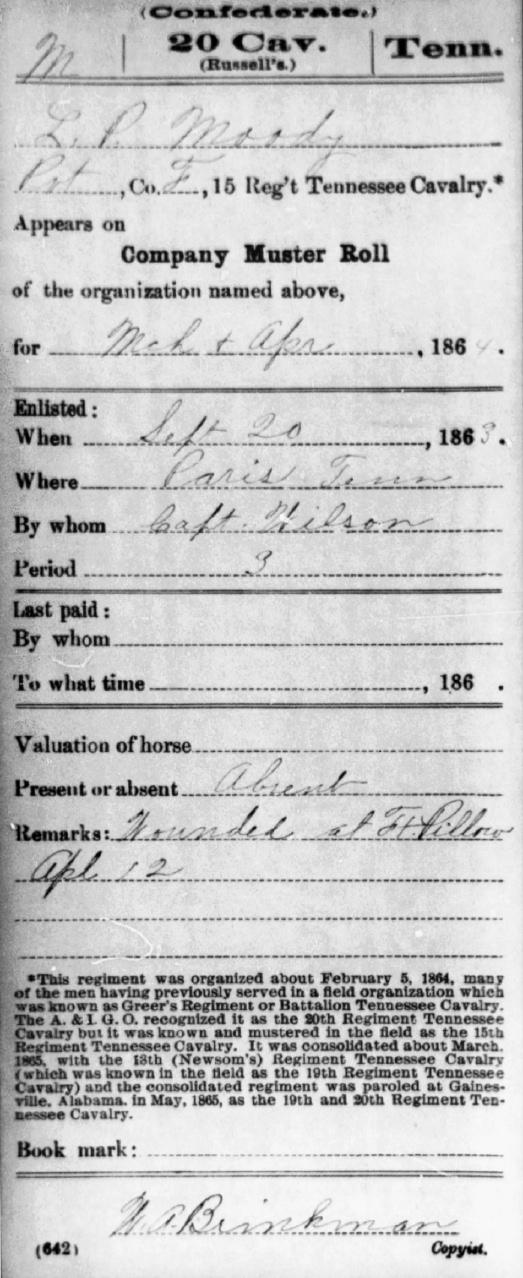 (Confederate.)
M | 20 Cav. | Tenn.
(Russell's.)
L. P. Moody
Pvt, Co. F, 15 Reg't Tennessee Cavalry.*
Appears on
Company Muster Roll
of the organization named above,
for Mch & Apr, 1864.
Enlisted:
When Sept 20, 1863.
Where Paris Tenn
By whom Capt. Wilson
Period 3
Last paid:
By whom
To what time, 186 .
Valuation of horse
Present or absent Absent
Remarks: Wounded at Ft Pillow
Apl 12
*This regiment was organized about February 5, 1864, many
of the men having previously served in a field organization which
was known as Greer's Regiment or Battalion Tennessee Cavalry.
The A. & I. G. O. recognized it as the 20th Regiment Tennessee
Cavalry but it was known and mustered in the field as the 15th
Regiment Tennessee Cavalry. It was consolidated about March,
1865, with the 18th (Newsom's) Regiment Tennessee Cavalry
(which was known in the field as the 19th Regiment Tennessee
Cavalry) and the consolidated regiment was paroled at Gaines-
ville, Alabama, in May, 1865, as the 19th and 20th Regiment Ten-
nessee Cavalry.
Book mark:
W. A. Brinkman
(642) Copyist.